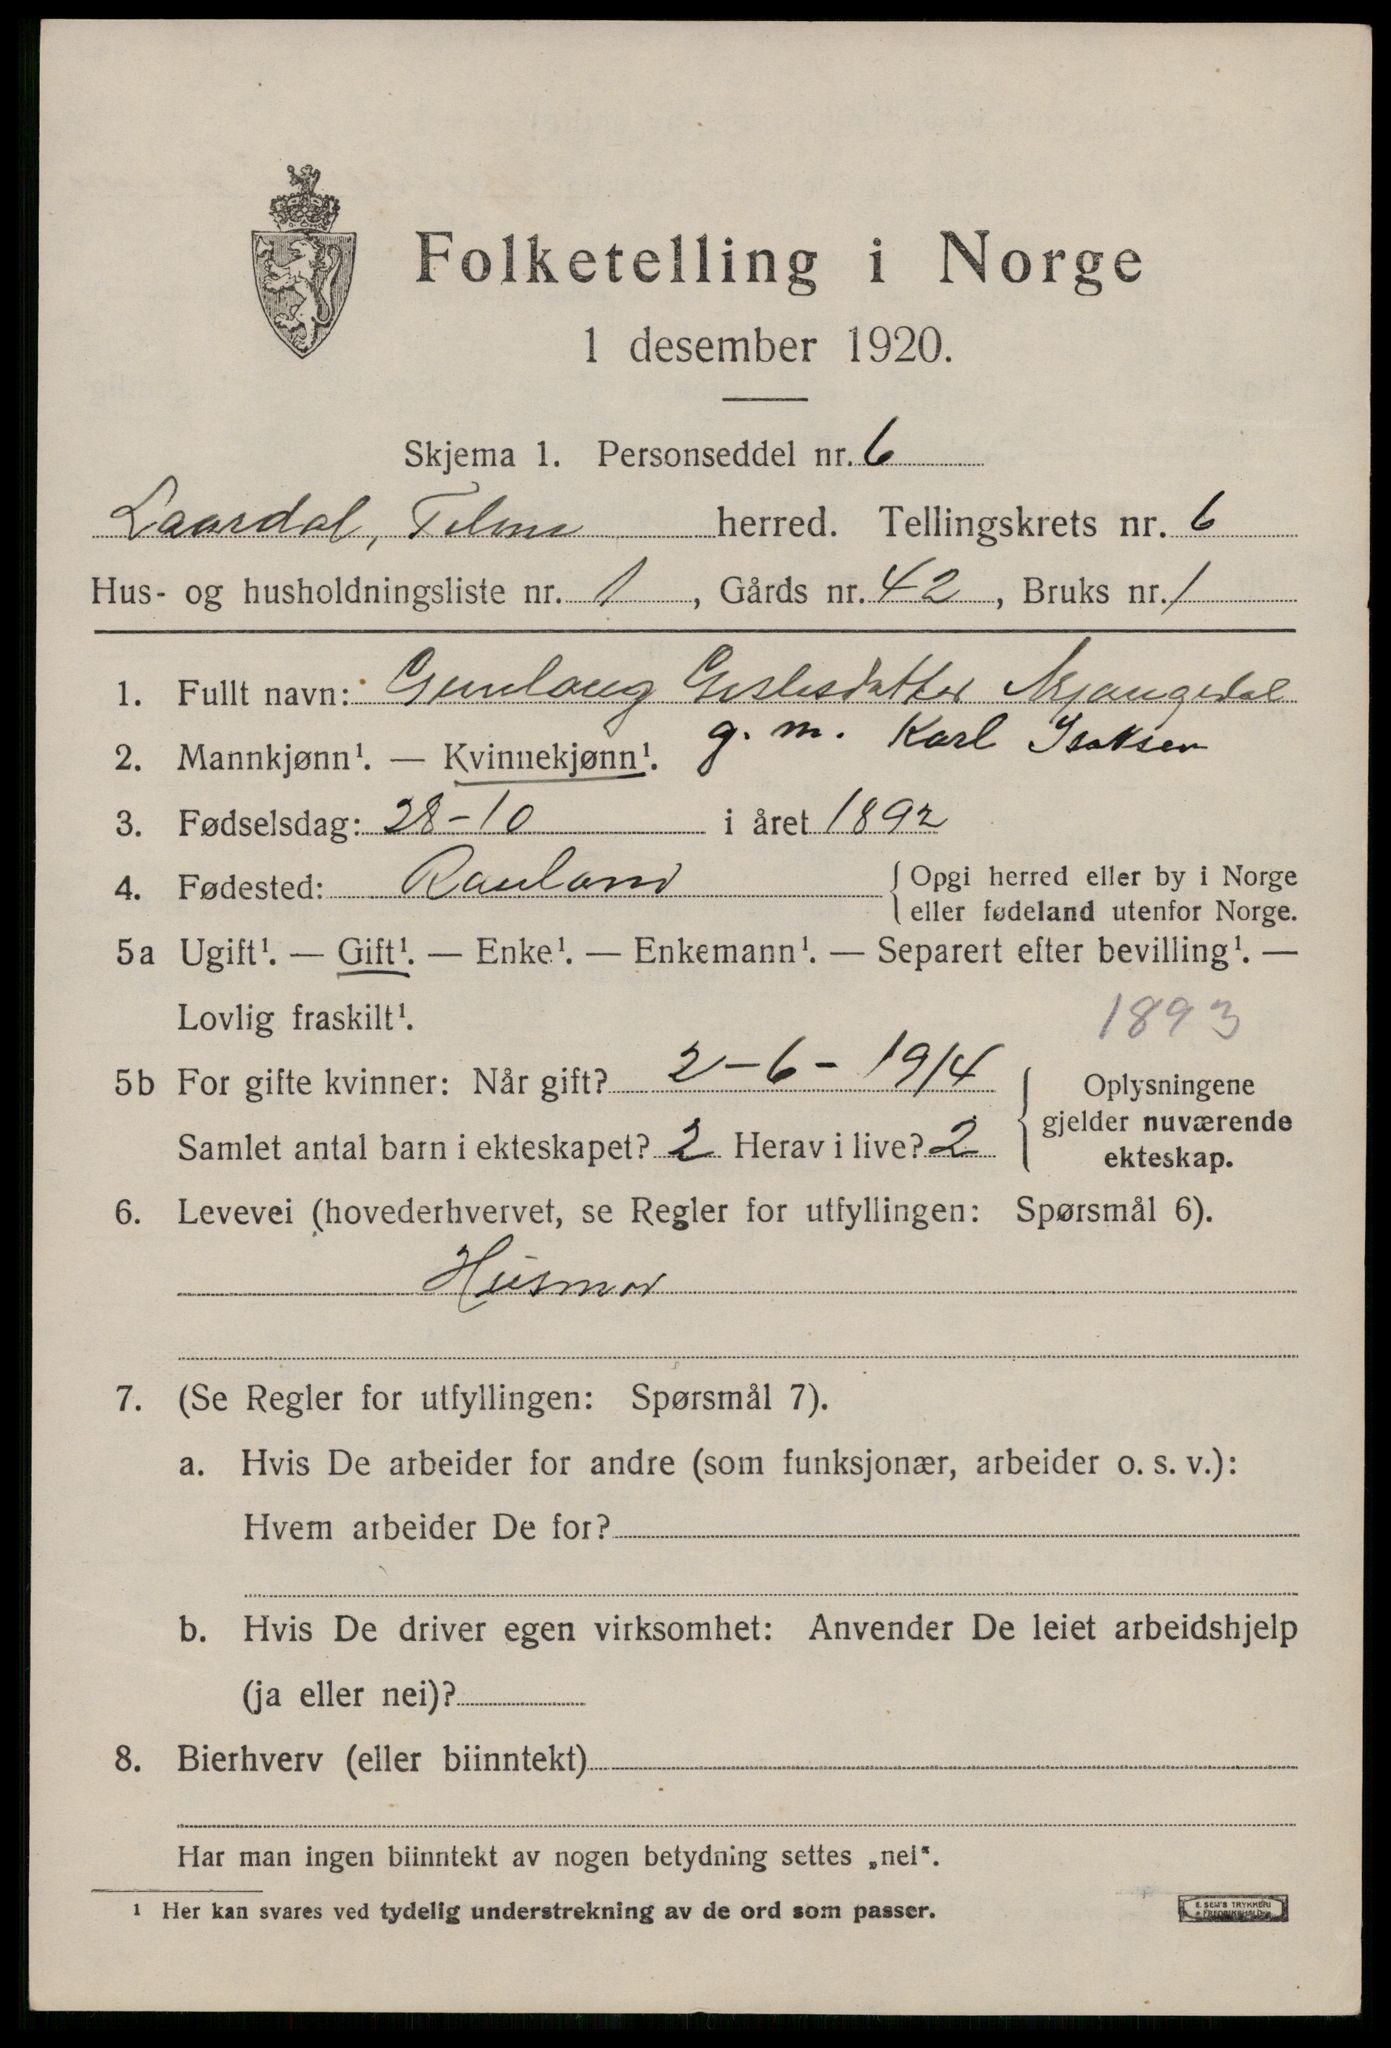 Folketelling i Norge
1 desember 1920.
Skjema 1. Personseddel nr. 6
Laardal, Telm. herred. Tellingskrets nr. 6
Hus- og husholdningsliste nr. 1, Gårds nr. 42, Bruks nr. 1
1. Fullt navn: Gunlaug Gislesdatter
g. m. Karl Isaksen
2. Mannkjønn¹. — Kvinnekjønn¹.
3. Fødselsdag: 28-10 i året 1892
4. Fødested: Rauland {Opgi herred eller by i Norge
eller fødeland utenfor Norge.
5a Ugift¹. — Gift¹. — Enke¹. — Enkemann¹. — Separert efter bevilling¹. —
Lovlig fraskilt¹.
1893
5b For gifte kvinner: Når gift? 2-6-1914
Samlet antal barn i ekteskapet? 2 Herav i live? 2
{Oplysningene
gjelder nuværende
ekteskap.
6. Levevei (hovederhvervet, se Regler for utfyllingen: Spørsmål 6).
Husmor
7. (Se Regler for utfyllingen: Spørsmål 7).
a. Hvis De arbeider for andre (som funksjonær, arbeider o. s. v.):
Hvem arbeider De for?
b. Hvis De driver egen virksomhet: Anvender De leiet arbeidshjelp
(ja eller nei)?
8. Bierhverv (eller biinntekt)
Har man ingen biinntekt av nogen betydning settes „nei“.
¹ Her kan svares ved tydelig understrekning av de ord som passer.
E. SEM'S TRYKKERI
FREDRIKSHALD